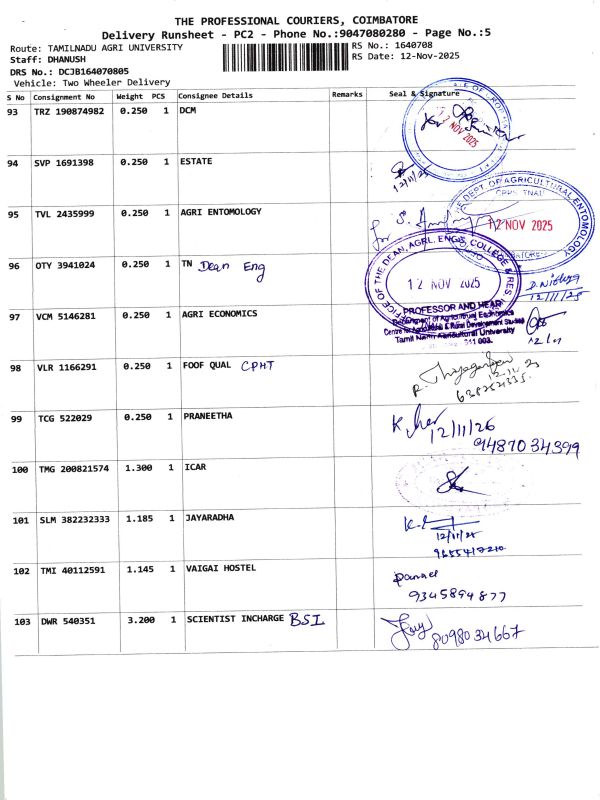 THE PROFESSIONAL COURIERS, COIMBATORE
Delivery Runsheet - PC2 - Phone No.:9047080280 - Page No.:5
Route: TAMILNADU AGRI UNIVERSITY
RS No.: 1640708
Staff: DHANUSH
RS Date: 12-Nov-2025
DRS No.: DCJB164070805
Vehicle: Two Wheeler Delivery
S No Consignment No Weight PCS Consignee Details Remarks Seal & Signature
93 TRZ 190874982 0.250 1 DCM
12 NOV 2025
94 SVP 1691398 0.250 1 ESTATE
12/11/25
95 TVL 2435999 0.250 1 AGRI ENTOMOLOGY
DEPT. OF AGRICULTURAL ENTOMOLOGY
12 NOV 2025
96 OTY 3941024 0.250 1 TN Dean Eng
OFFICE OF THE DEAN, AGRL. ENGG. COLLEGE & RES
12 NOV 2025
12/11/25
97 VCM 5146281 0.250 1 AGRI ECONOMICS
PROFESSOR AND HEAD
Department of Agricultural Economics
Centre for Agricultural & Rural Development Studies
Tamil Nadu Agricultural University
98 VLR 1166291 0.250 1 FOOF QUAL CPHT
99 TCG 522029 0.250 1 PRANEETHA
12/11/26
9487034399
100 TMG 200821574 1.300 1 ICAR
101 SLM 382232333 1.185 1 JAYARADHA
12/11/25
9655417210
102 TMI 40112591 1.145 1 VAIGAI HOSTEL
9345894877
103 DWR 540351 3.200 1 SCIENTIST INCHARGE BSI
8098034667